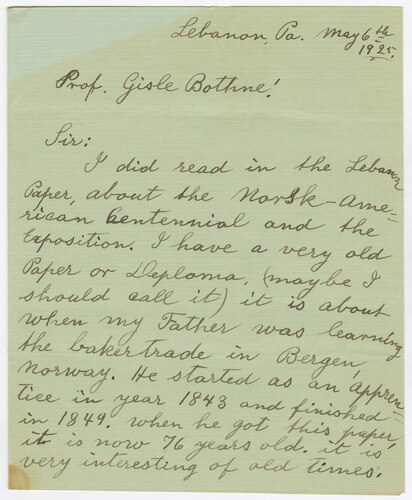 Lebanon, Pa. May 6th
1925.
Prof. Gisle Bothne!
Sir:
I did read in the Lebanon
Paper, about the Norsk-Ame-
rican Centennial and the
Exposition. I have a very old
Paper or Deploma, (maybe I
should call it) it is about
when my Father was learning
the bakertrade in Bergen,
Norway. He started as an Appren-
tice in year 1843 and finished
in 1849. when he got this paper,
it is now 76 years old. it is
very interesting of old times.